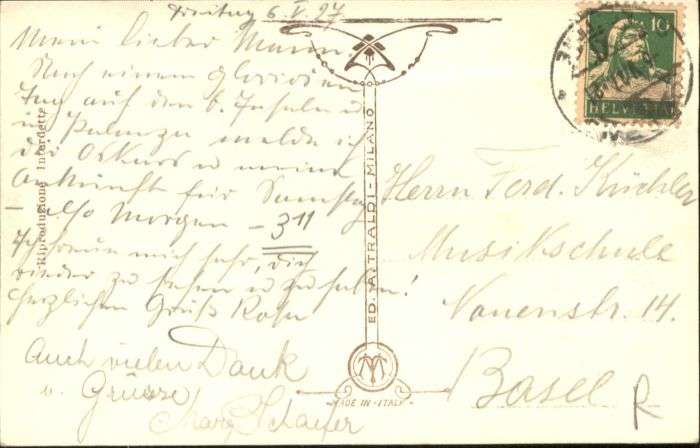 Freitag 6. V. 27
Mein lieber Mann.
Nach einem gloriosen
Tag auf den b. Inseln u
in Palanza melde ich
dir Oskars u meine
Ankunft für Samstag
– also Morgen – 3 11
Ich freue mich sehr, dich
wieder zu sehen u zu haben!
Herzlichen Gruß
Auch vielen Dank
u. Grüsse
Schaefer
Riproduzione Interdetta
ED. A. TRALDI - MILANO
MADE IN ITALY
10
HELVETIA
Herrn Ferd. Küchler
Musikschule
Nonenstr. 14.
Basel
R